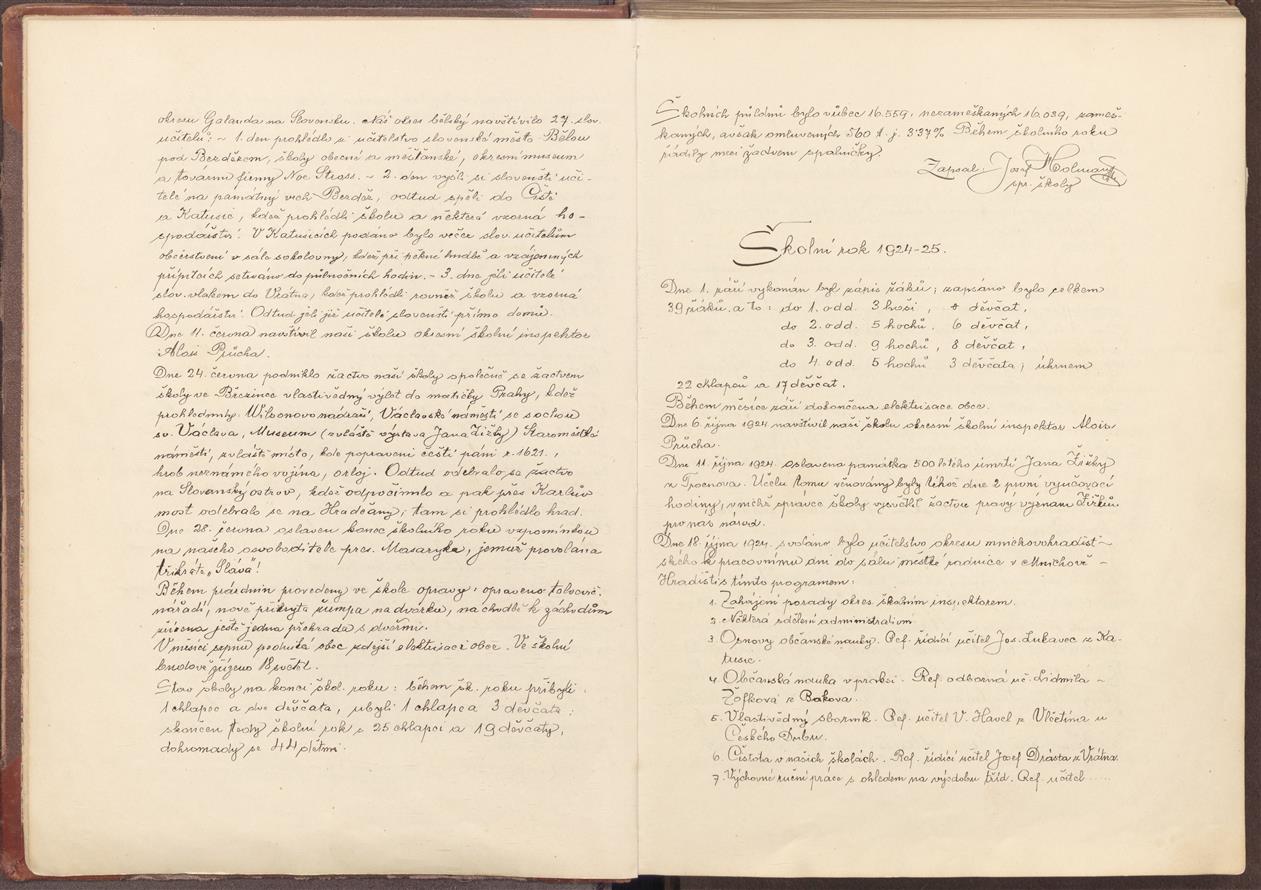 okresu Galanda na Slovensku. Náš okres bělský navštívilo 27 slov.
učitelů: – 1. den prohlédlo si učitelstvo slovenské město Bělou
pod Bezdězem, školy obecné a měšťanské, okresní museum
a továrnu firmy Noe Stross. – 2. den vyšli si slovenští uči-
telé na památný vrch Bezděz, odtud spěli do Čisté
a Katusic, kdež prohlédli školu a některá vzorná ho-
spodářství. V Katusicích podáno bylo večer slov. učitelům
občerstvení v sále sokolovny, kdež při pěkné hudbě a vzájemných
přípitcích setrváno do půlnočních hodin. – 3. dne jeli učitelé
slov. vlakem do Vrátna, kdež prohlédli rovněž školu a vzorná
hospodářství. Odtud jeli již učitelé slovenští přímo domů.
Dne 11. června navštívil naši školu okresní školní inspektor
Alois Průcha.
Dne 24. června podniklo žactvo naší školy společně se žactvem
školy ve Březince vlastivědný výlet do matičky Prahy, kdež
prohlednuty: Wilsonovo nádraží, Václavské náměstí se sochou
sv. Václava, Museum (zvláště výstava Jana Žižky) Staroměstské
náměstí, zvláště místo, kde popraveni čeští páni r. 1621.,
hrob neznámého vojína, orloj. Odtud odebralo se žactvo
na Slovanský ostrov, kdež odpočinulo a pak přes Karlův
most odebralo se na Hradčany; tam si prohlédlo hrad.
Dne 28. června oslaven konec školního roku vzpomínkou
na našeho osvoboditele pres. Masaryka, jemuž provolána
třikráte „Sláva“!
Během prázdnin provedeny ve škole opravy: opraveno tělocvič.
nářadí, nově přikryta žumpa na dvorku, na chodbě k záchodům
zřízena ještě jedna překrada s dveřmi.
V měsíci srpnu podniká obec zdejší elektrisaci obce. Ve školní
budově zřízeno 18 světel.
Stav školy na konci škol. roku: během šk. roku přibyli
1 chlapec a dvě děvčata, ubyli 1 chlapec a 3 děvčata;
skončen tedy školní rok s 25 chlapci a 19 děvčaty,
dohromady se 44 dětmi.
Školních půldnů bylo vůbec 16.559, nezameškaných 16.039, zameš-
kaných, avšak omluvených 560 t. j. 3·37% Během školního roku
řádily mezi žactvem spalničky.
Zapsal: Josef Holman
spr. školy
Školní rok 1924-25.
Dne 1. září vykonán byl zápis žáků; zapsáno bylo celkem
39 žáků, a to: do 1. odd. 3 hoši, 0 děvčat,
do 2. odd. 5 hochů, 6 děvčat,
do 3. odd. 9 hochů, 8 děvčat,
do 4. odd. 5 hochů 3 děvčata; úhrnem
22 chlapců a 17 děvčat.
Během měsíce září dokončena elektrisace obce.
Dne 6. října 1924 navštívil naši školu okresní školní inspektor Alois
Průcha.
Dne 11. října 1924 oslavena památka 500 letého úmrtí Jana Žižky
z Trocnova. Účelu tomu věnovány byly téhož dne 2 první vyučovací
hodiny, v nichž správce školy vysvětlil žactvu pravý význam Žižkův
pro náš národ.
Dne 18. října 1924 svoláno bylo učitelstvo okresu mnichovohradišt-
ského k pracovnímu dni do sálu městské radnice v Mnichově-
Hradišti s tímto programem:
1. Zahájení porady okres. školním inspektorem.
2. Některá sdělení administrativní.
3. Osnovy občanské nauky. Ref. řídící učitel Jos. Lukavec z Ka-
tusic.
4. Občanská nauka v praksi. Ref. odborná uč. Lidmila
Žofková z Bakova.
5. Vlastivědný sborník. Ref. učitel V. Havel z Vlčetína u
Českého Dubu.
6. Čistota v našich školách. Ref. řídící učitel Josef Drásta z Vrátna
7. Výchovné ruční práce s ohledem na výzdobu tříd. Ref. učitel .....